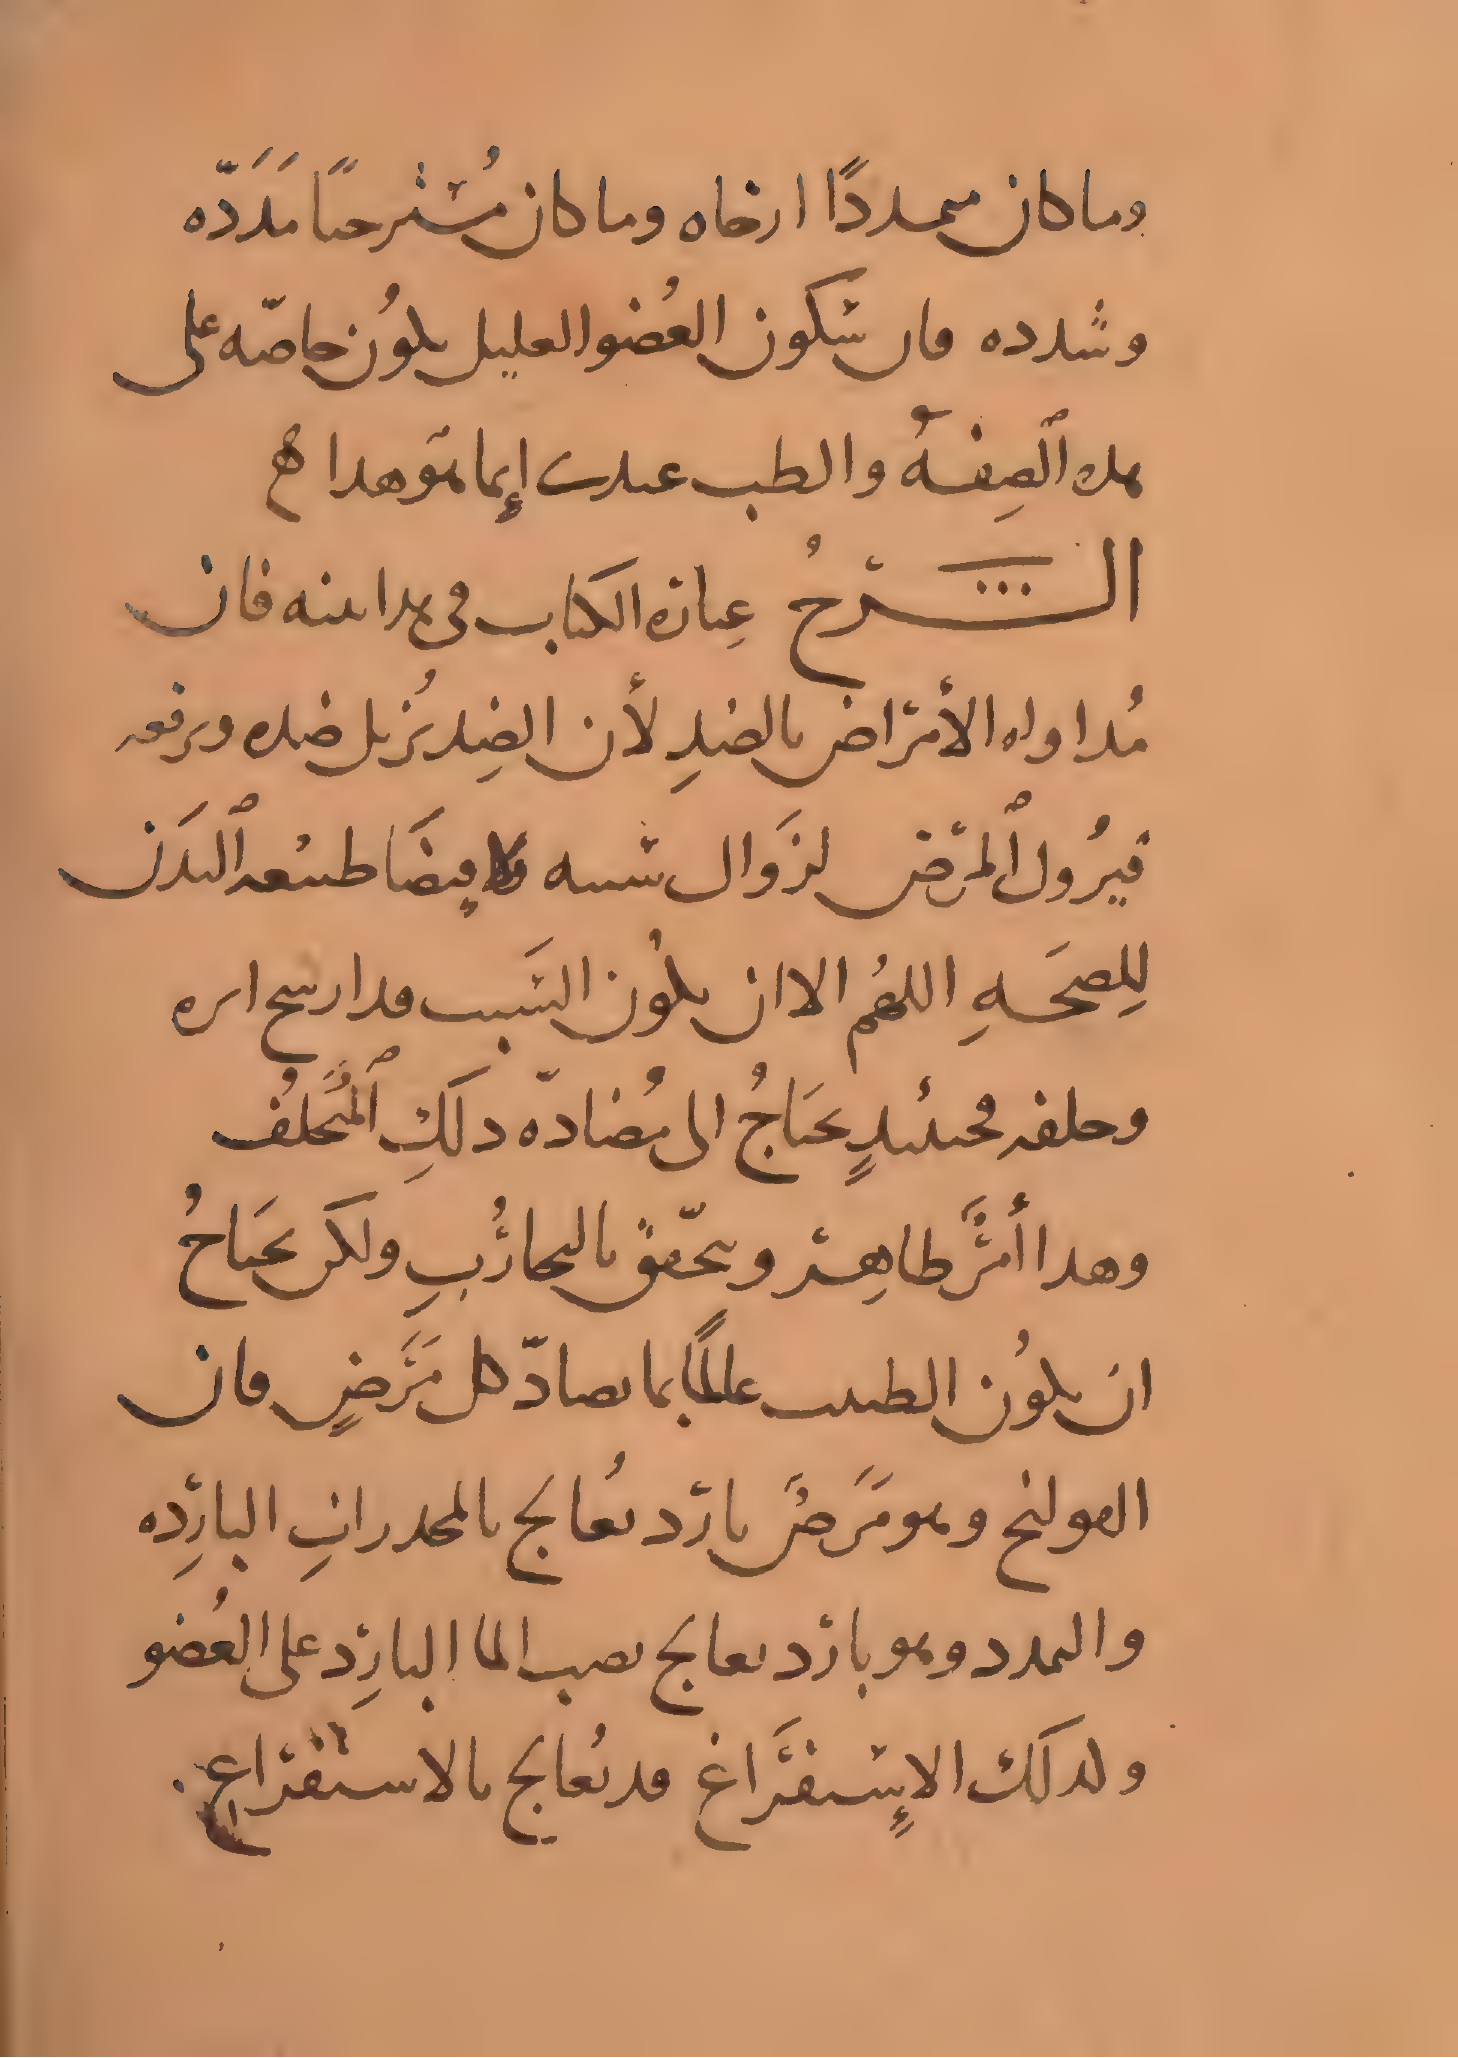 وما كان متمددًا ارخاه وما كان مُسْترخيًا مَدَدّه
وشدده فان سكون العُضو العليل يكُون خاصّه على
هذه الصِفةُ والطب عندى إنما هو هدا
الشرحُ عِبارة الكتاب فى هدا بينه فان
مُداواه الأمراض بالضدِ لأن الضِد يُزيل ضده ويرفعه
فيزُول المرض لزَوال سببه ولإيضَا طبيعه البَدَن
لِلصحَـهِ اللهُم الا ان يكُون السَبب قد ارسخ اثره
وخلفه فحينئذٍ يحتَاجُ الى مُضادّه دلَكِ المُتَخلفُ
وهدا أمرٌ ظاهِر ويتحّقق بالتجارُبِ ولكن يحتَاجُ
ان يكُون الطبيب عالمًا بما يضادّ كل مَرَضٍ فان
القولنج وهو مَرَضٌ بارد يُعالَج بالمخدراتِ البارِده
والتمدد وهو بارد يعالج بصب الما البارِد على العُضو
ولدلَك الإستفرَاغ قد يُعالج بالاستفراغ.